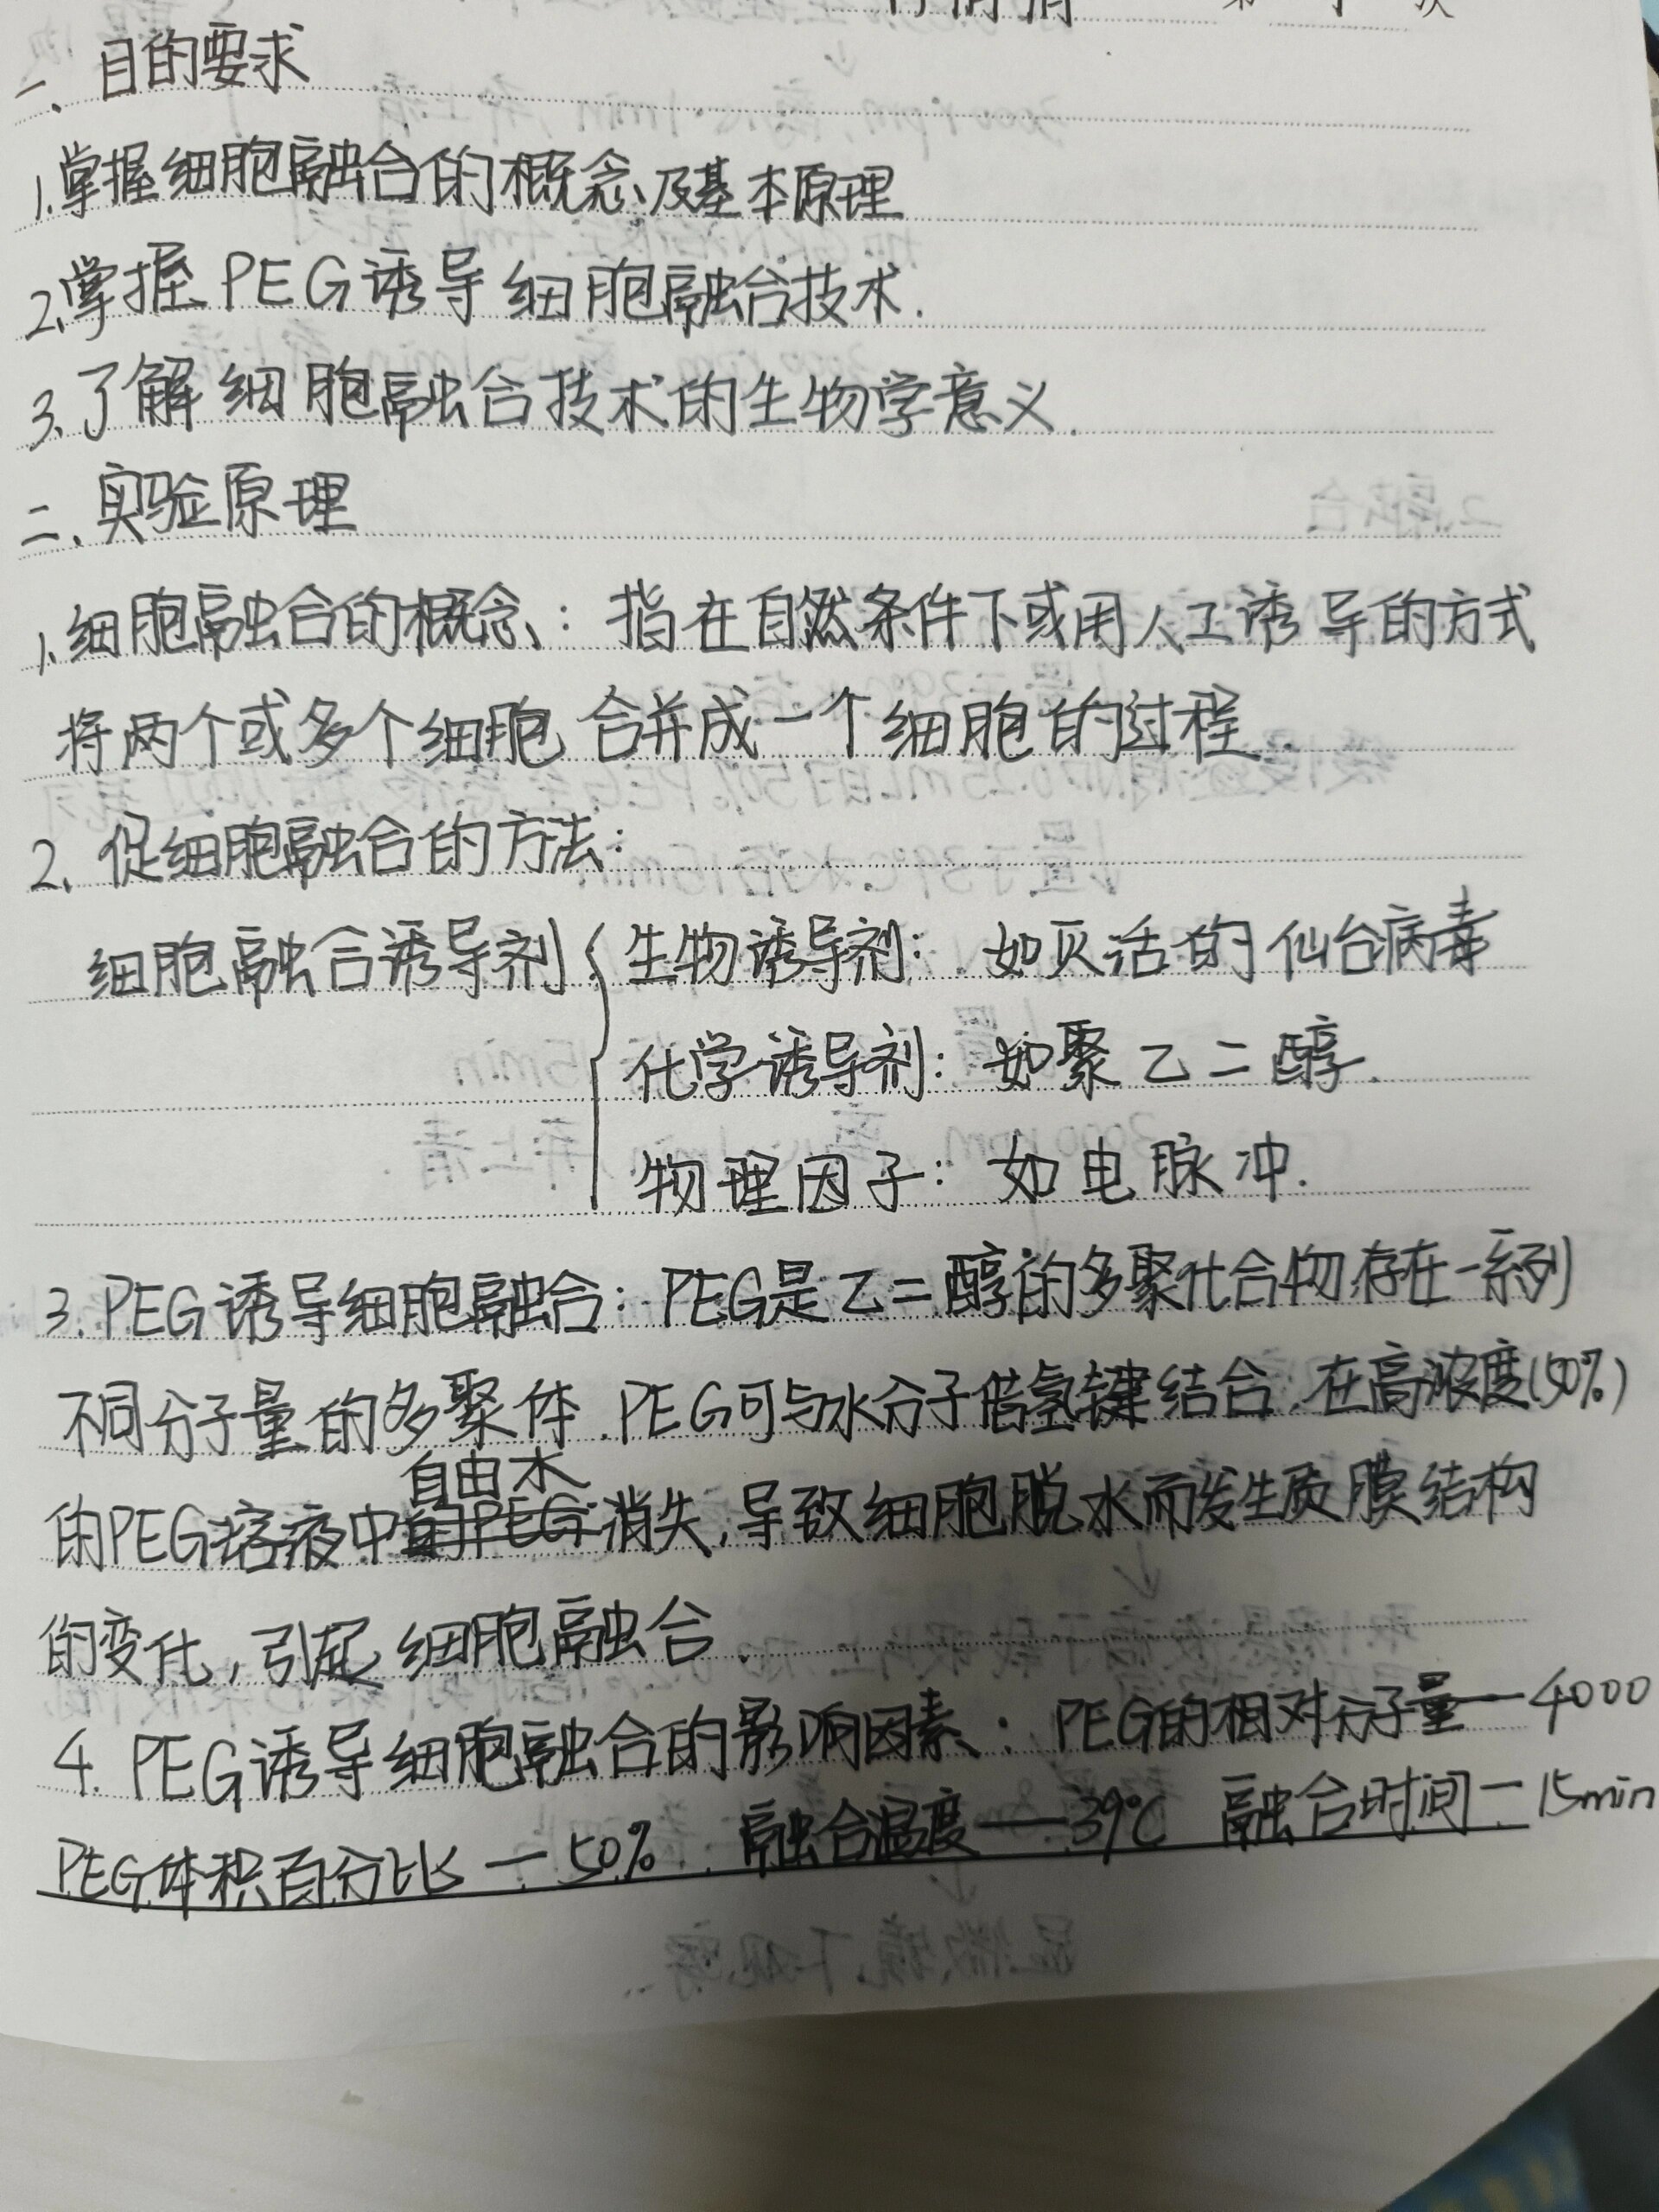 一、目的要求
1.掌握细胞融合的概念及基本原理
2.掌握PEG诱导细胞融合技术.
3.了解细胞融合技术的生物学意义.
二.实验原理
1.细胞融合的概念:指在自然条件下或用人工诱导的方式
将两个或多个细胞合并成一个细胞的过程.
2.促细胞融合的方法:
细胞融合诱导剂{生物诱导剂:如灭活的仙台病毒
化学诱导剂:如聚乙二醇.
物理因子:如电脉冲.
3.PEG诱导细胞融合:PEG是乙二醇的多聚化合物.存在一系列
不同分子量的多聚体.PEG可与水分子借氢键结合,在高浓度(50%)
自由水
的PEG溶液中消失,导致细胞脱水而发生质膜结构
的变化,引起细胞融合.
4.PEG诱导细胞融合的影响因素:PEG的相对分子量—4000
PEG体积百分比—50% 融合温度—39℃ 融合时间—15min